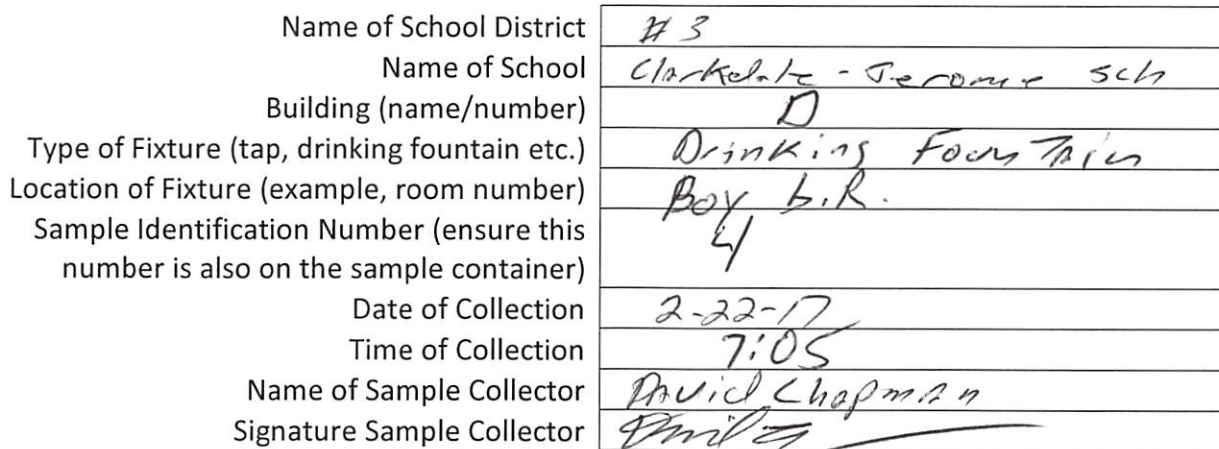 Name of School District # 3
Name of School Clarkdale - Jerome sch
Building (name/number) D
Type of Fixture (tap, drinking fountain etc.) Drinking Fountain
Location of Fixture (example, room number) Boy b.R.
Sample Identification Number (ensure this
number is also on the sample container) 4
Date of Collection 2-22-17
Time of Collection 7:05
Name of Sample Collector David Chapman
Signature Sample Collector